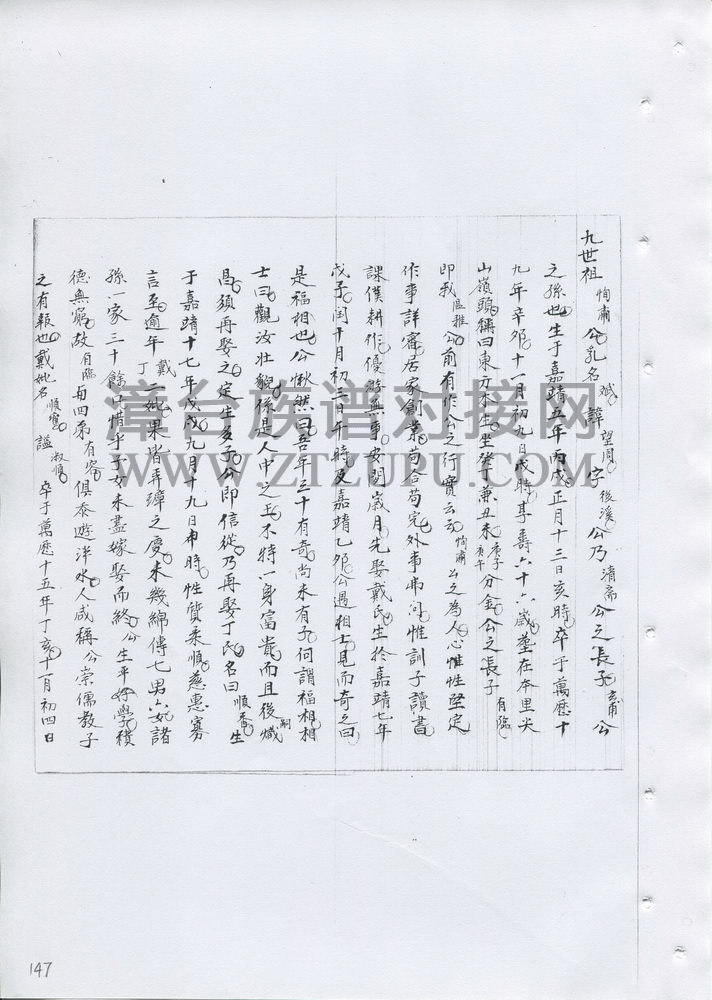 九世祖恂肅公乳名斌諱望周字後溪公乃清斋公之長子玄甫公
之孫也生于嘉靖五年丙戌正月十三日亥時卒于萬曆十
九年辛卯十一月初九日戌時享壽六十六歲墓在本里尖
山嶺頭稱曰東方木生坐癸兼丑未庚子庚午分金公之長子有臨
即我匡雅公前有作公之行實云云恂肅公之為人心惟性堅定
作事詳審居家創業苟合苟完外事弗问惟訓子讀書
課僕耕作優游無事安閒歲月先娶戴氏生於嘉靖七年
戊子闰十月初三日午時及嘉靖乙卯公遇相士見而奇之曰
是福相也公愀然曰吾年三十有奇尚未有子何謂福相相
士曰觀汝壯貌係是人中之玉不特一身富貴而且後嗣熾
昌須再娶之定生多子公即信從乃再娶丁氏名曰順香生
于嘉靖十七年戊戌九月十九日申時性質柔順慈惠寡
言至逾年戴丁二妣果皆弄璋之慶未幾綿傳七男六女諸
孫一家三十餘口惜乎子女未盡嫁娶而終公生平好學積
德無窮故有臨与四弟有容俱泰遊泮水人咸稱公崇儒教子
之有報也戴妣名順寬謚淑順卒于萬曆十五年丁亥十一月初四日
漳台族谱对接网
WWW.ZTZUPU.COM
147